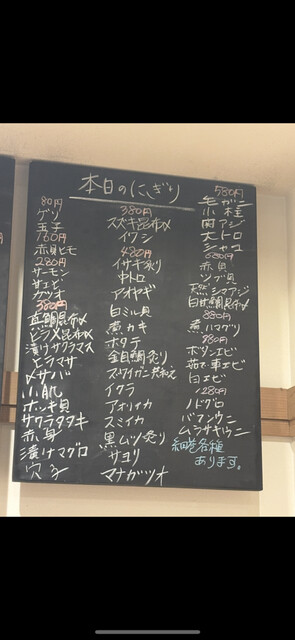 本日のにぎり
80円
ゲソ
玉子
160円
赤貝ヒモ
280円
サーモン
甘エビ
ゲソオ
380円
真鯛昆布〆
ヒラメ昆布〆
漬けサクラマス
ヒラマサ
〆サバ
小肌
ホッキ貝
サワラタタキ
赤身
漬けマグロ
穴子
380円
スズキ昆布〆
イワシ
480円
イサキ炙り
中トロ
アオヤギ
白ミル貝
煮カキ
ホタテ
金目鯛炙り
ズワイガニ共和え
イクラ
アオリイカ
スミイカ
黒ムツ炙り
サヨリ
マナガツオ
580円
毛ガニ
小柱
関アジ
大トロ
シャコ
680円
赤貝
ツブ貝
天然シマアジ
白甘鯛昆布〆
880円
煮ハマグリ
980円
ボタンエビ
茹で車エビ
白エビ
1280円
ノドグロ
バフンウニ
ムラサキウニ
細巻各種
あります。